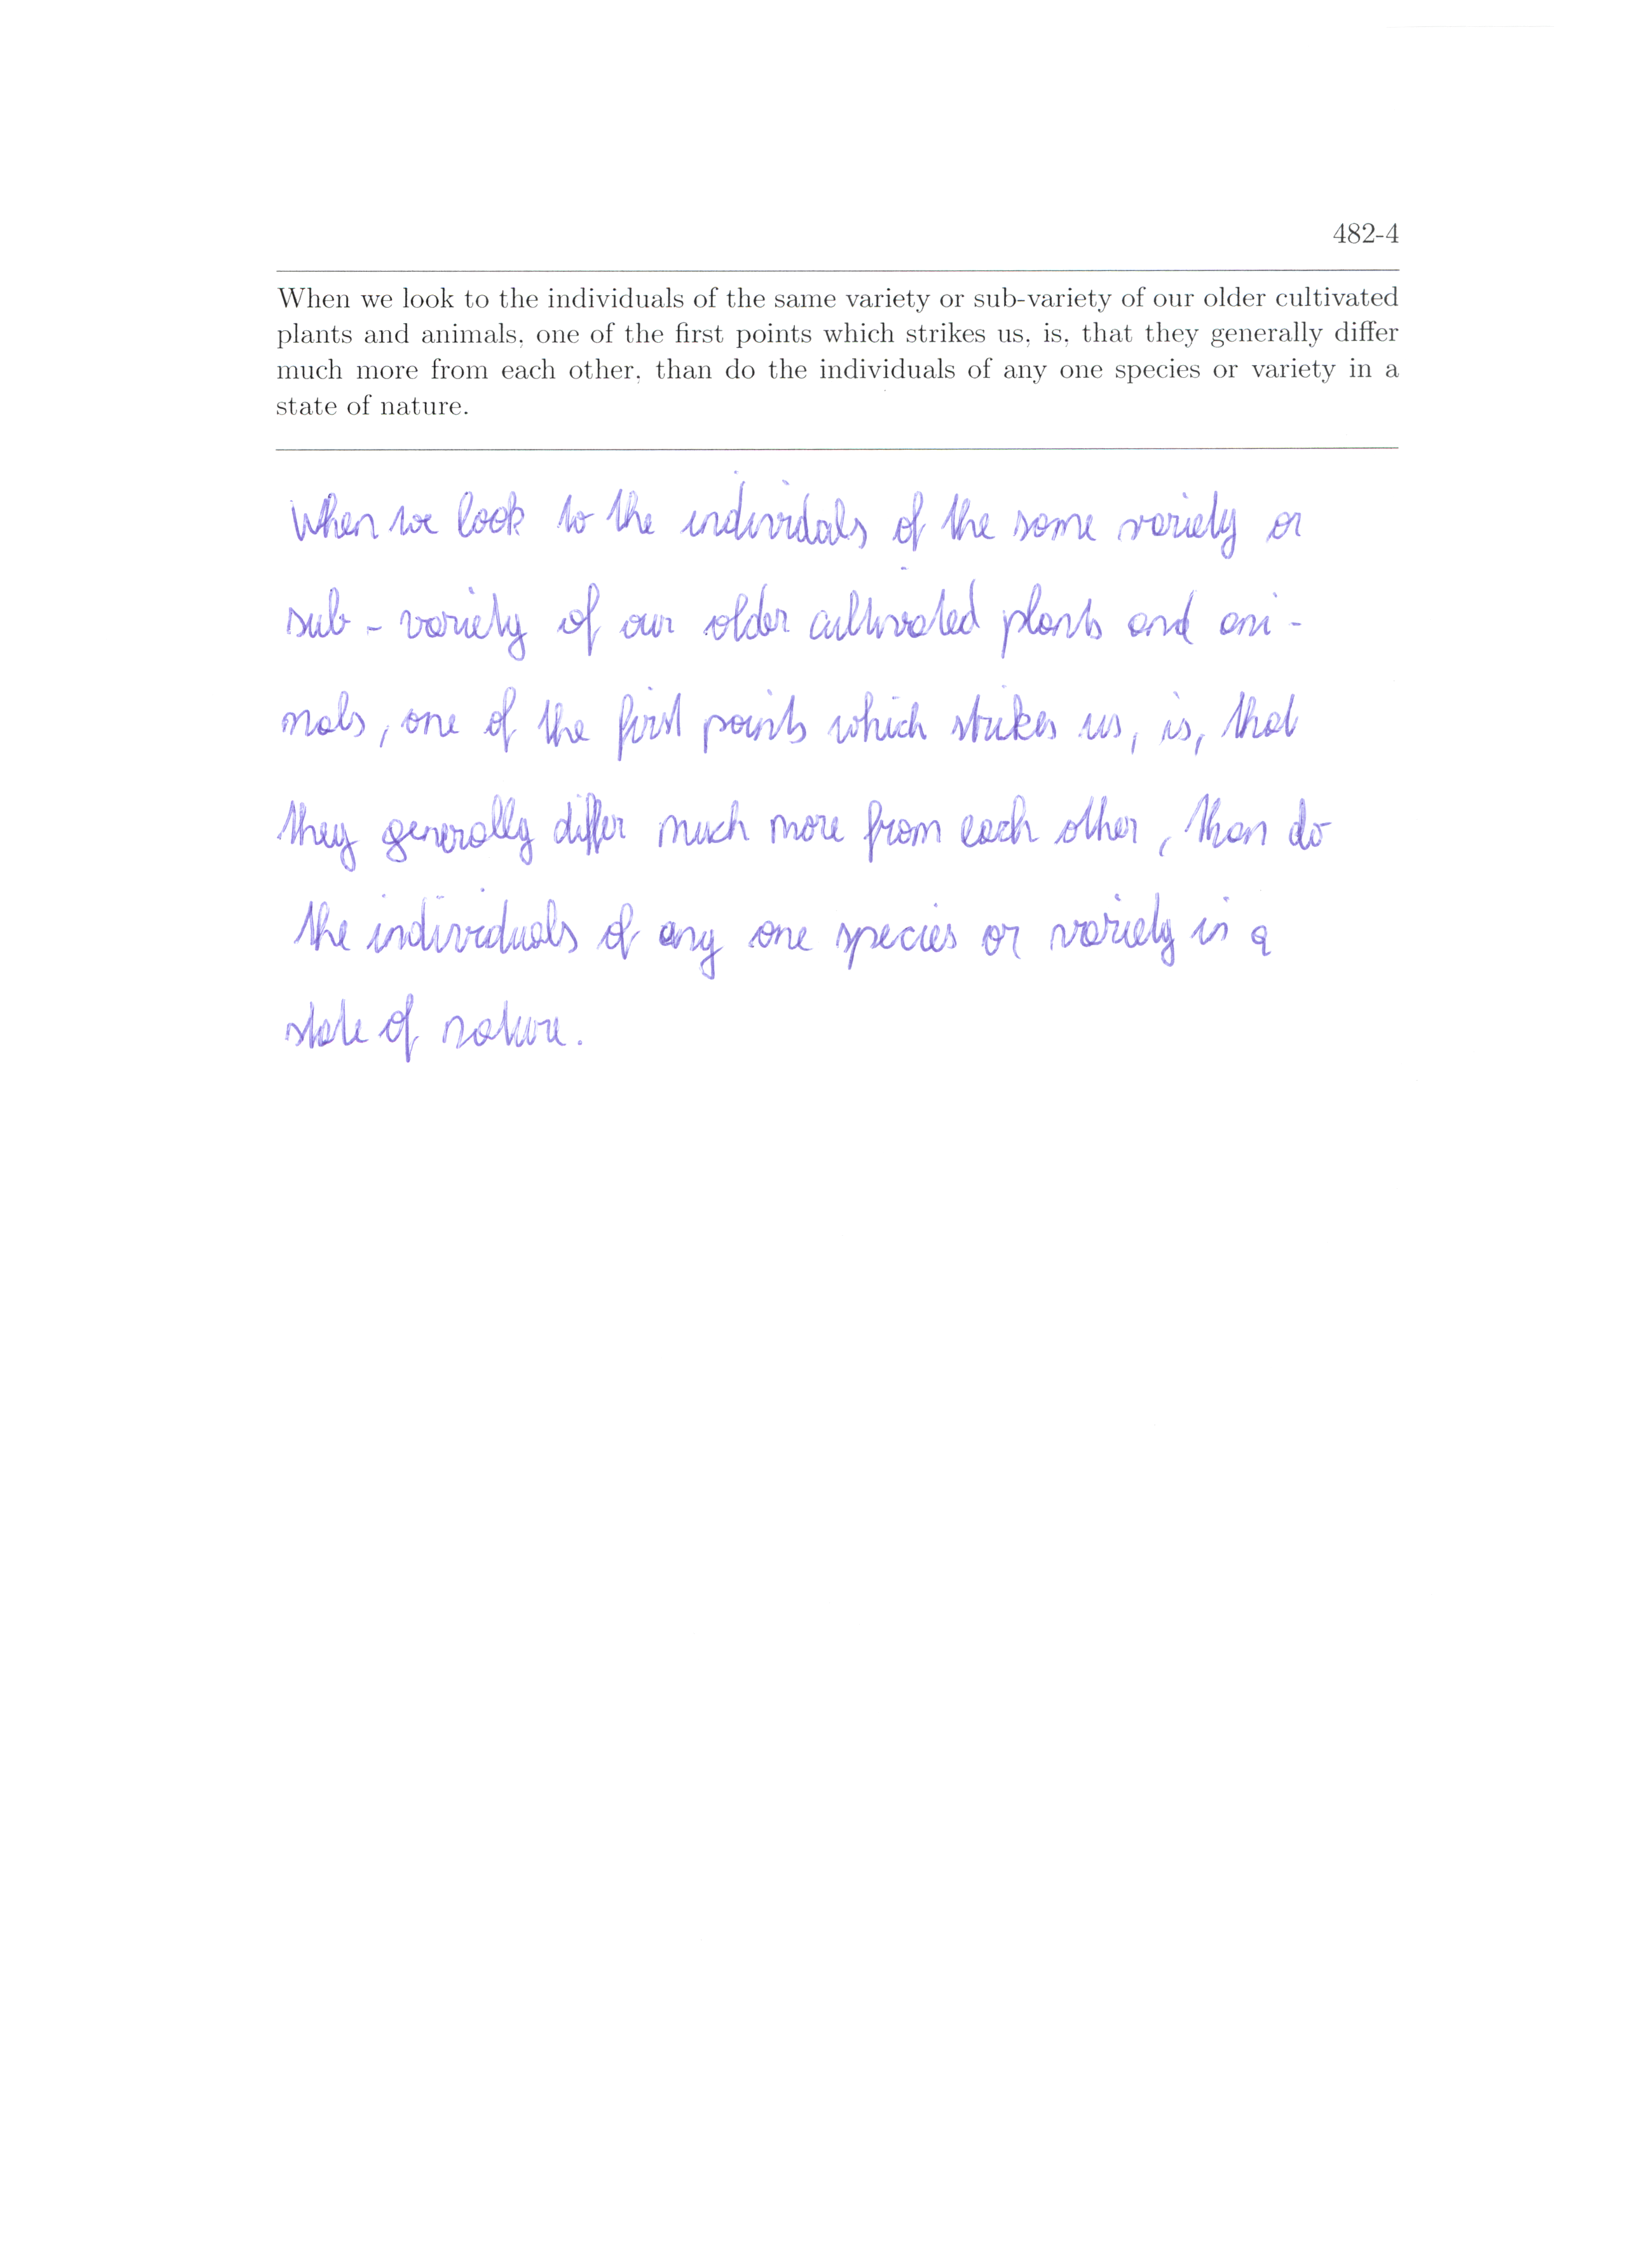 482-4
When we look to the individuals of the same variety or sub-variety of our older cultivated
plants and animals, one of the first points which strikes us, is, that they generally differ
much more from each other, than do the individuals of any one species or variety in a
state of nature.
When we look to the individals of the same variety or
sub-variety of our older cultivated plants and ani-
mals, one of the first points which strikes us, is, that
they generally differ much more from each other, than do
the individuals of any one species or variety in a
state of nature.